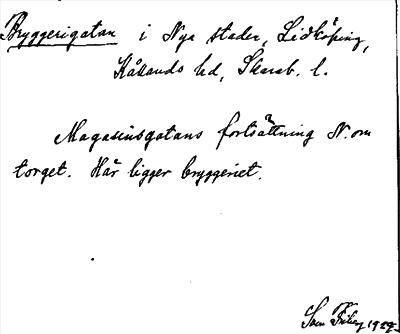 Bryggerigatan i Nya staden, Lidköping,
Kållands hd, Skarab. l.
Magasinsgatans fortsättning N. om
torget. Här ligger bryggeriet.
Sven 1929